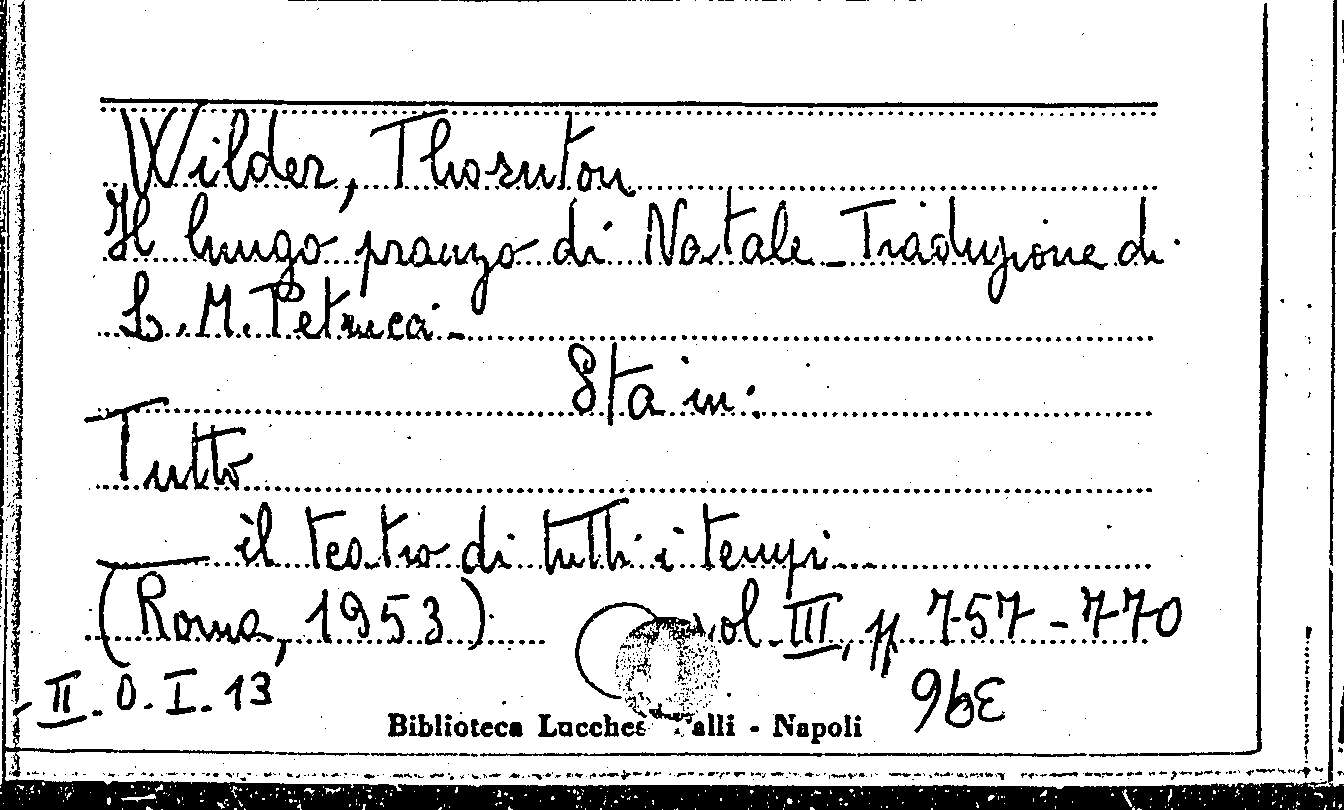 Wilder, Thornton
Il lungo pranzo di Natale - Traduzione di
L. M. Petrucci -
Sta in:
Tutto
— il teatro di tutti i tempi
(Roma, 1953) vol. III, pp 757-770
II. O. I. 13
Biblioteca Lucches alli - Napoli